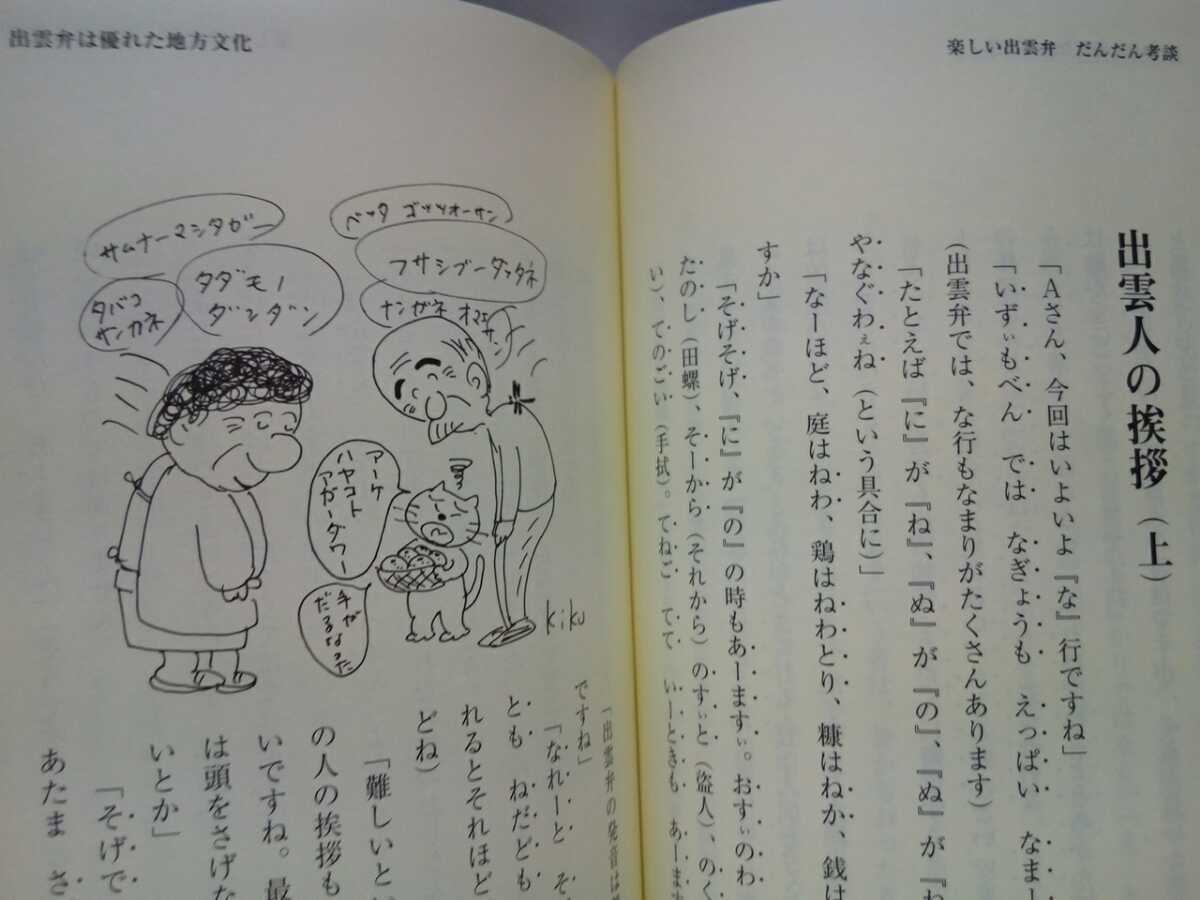 楽しい出雲弁　だんだん考談
出雲人の挨拶（上）
「Aさん、今回はいよいよ『な』行ですね」
「いずぃもべん　では　なぎょうも　えっぱい　なまー
（出雲弁では、な行もなまりがたくさんあります）
「たとえば『に』が『ね』、『ぬ』が『の』、『ぬ』が『ね
やなぐわぇね（という具合に）」
「なーほど、庭はねわ、鶏はねわとり、糠はねか、銭は
すか」
「そげそげ、『に』が『の』の時もあーますぃ。おすぃのわ
たのし（田螺）、そーから（それから）のすぃと（盗人）、のく
い）、てのごい（手拭）。てねご　てて　いーときも　あーま
出雲弁は優れた地方文化
ベッタ ゴッツオーサン
フサシブーダッタネ
ナンガネ オマエサン
サムナーマシタガー
タダモノ
ダンダン
タバコ
サンカネ
アーケ
ハヤコト
アガーダワー
手が
だるなった
kiku
「出雲弁の発音は
ですね」
「なれーと　そ
とも　ねだども
れるとそれほど
どね）
「難しいとい
の人の挨拶も
いですね。最
は頭をさげな
いとか」
「そげで
あたま　さ